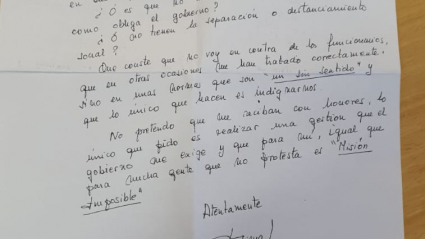 ¿O es que no
como obliga el gobierno?
¿O no tienen la separación o distanciamiento
social?
Que conste que no voy en contra de los funcionarios,
que en otras ocasiones me han tratado correctamente.
sino en unas normas que son "un sin sentido" y
que lo único que hacen es indignarnos.
No pretendo que me reciban con honores, lo
único que pido es realizar una gestión que el
gobierno me exige y que para mí, igual que
para mucha gente que no protesta es "Misión
Imposible"
Atentamente